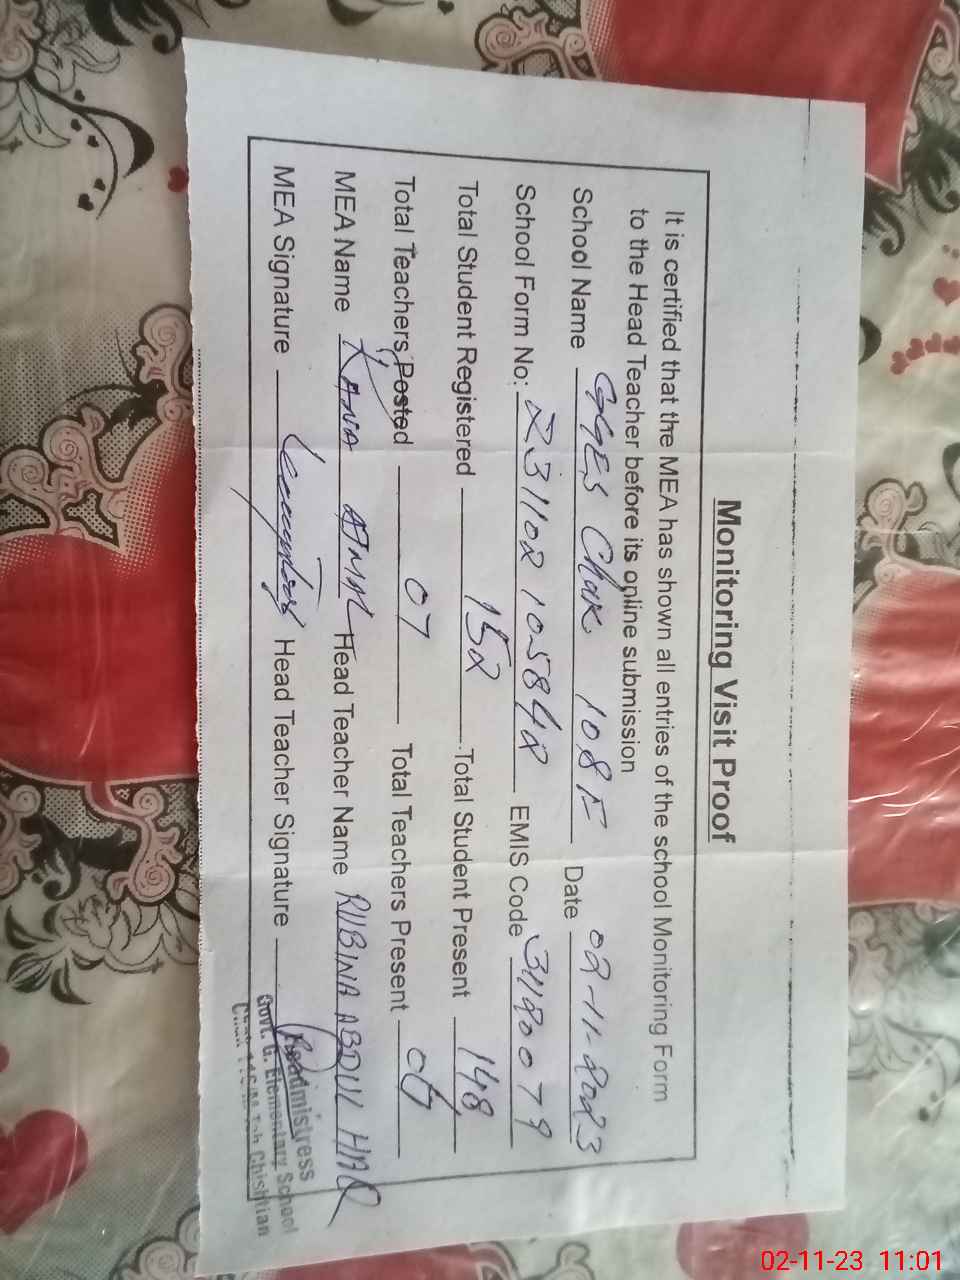 Monitoring Visit Proof
It is certified that the MEA has shown all entries of the school Monitoring Form
to the Head Teacher before its online submission
School Name GGES Chak 108 F Date 02-11-2023
School Form No: R31102105842 EMIS Code 31190079
Total Student Registered 152 Total Student Present 148
Total Teachers Posted 07 Total Teachers Present
MEA Name RANA Head Teacher Name RUBINA ABDUL HAQ
MEA Signature Head Teacher Signature
Headmistress
Govt. G. Elementary School
Chak Teh Chishtian
02-11-23 11:01